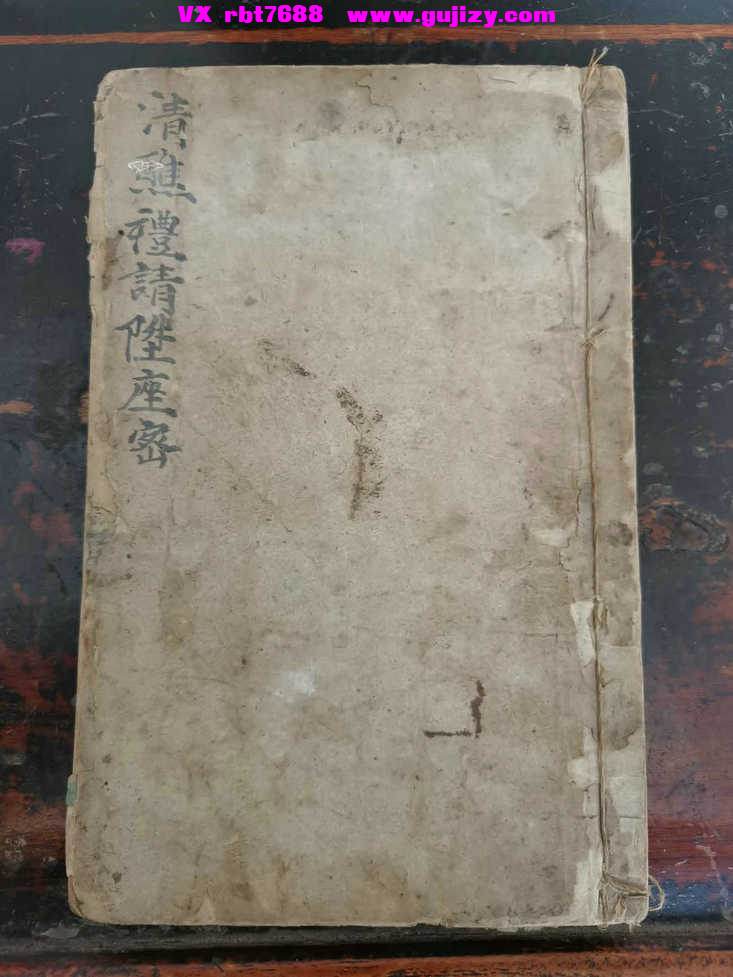 VX rbt7688 www.gujizy.com
清醮禮請陞座宻